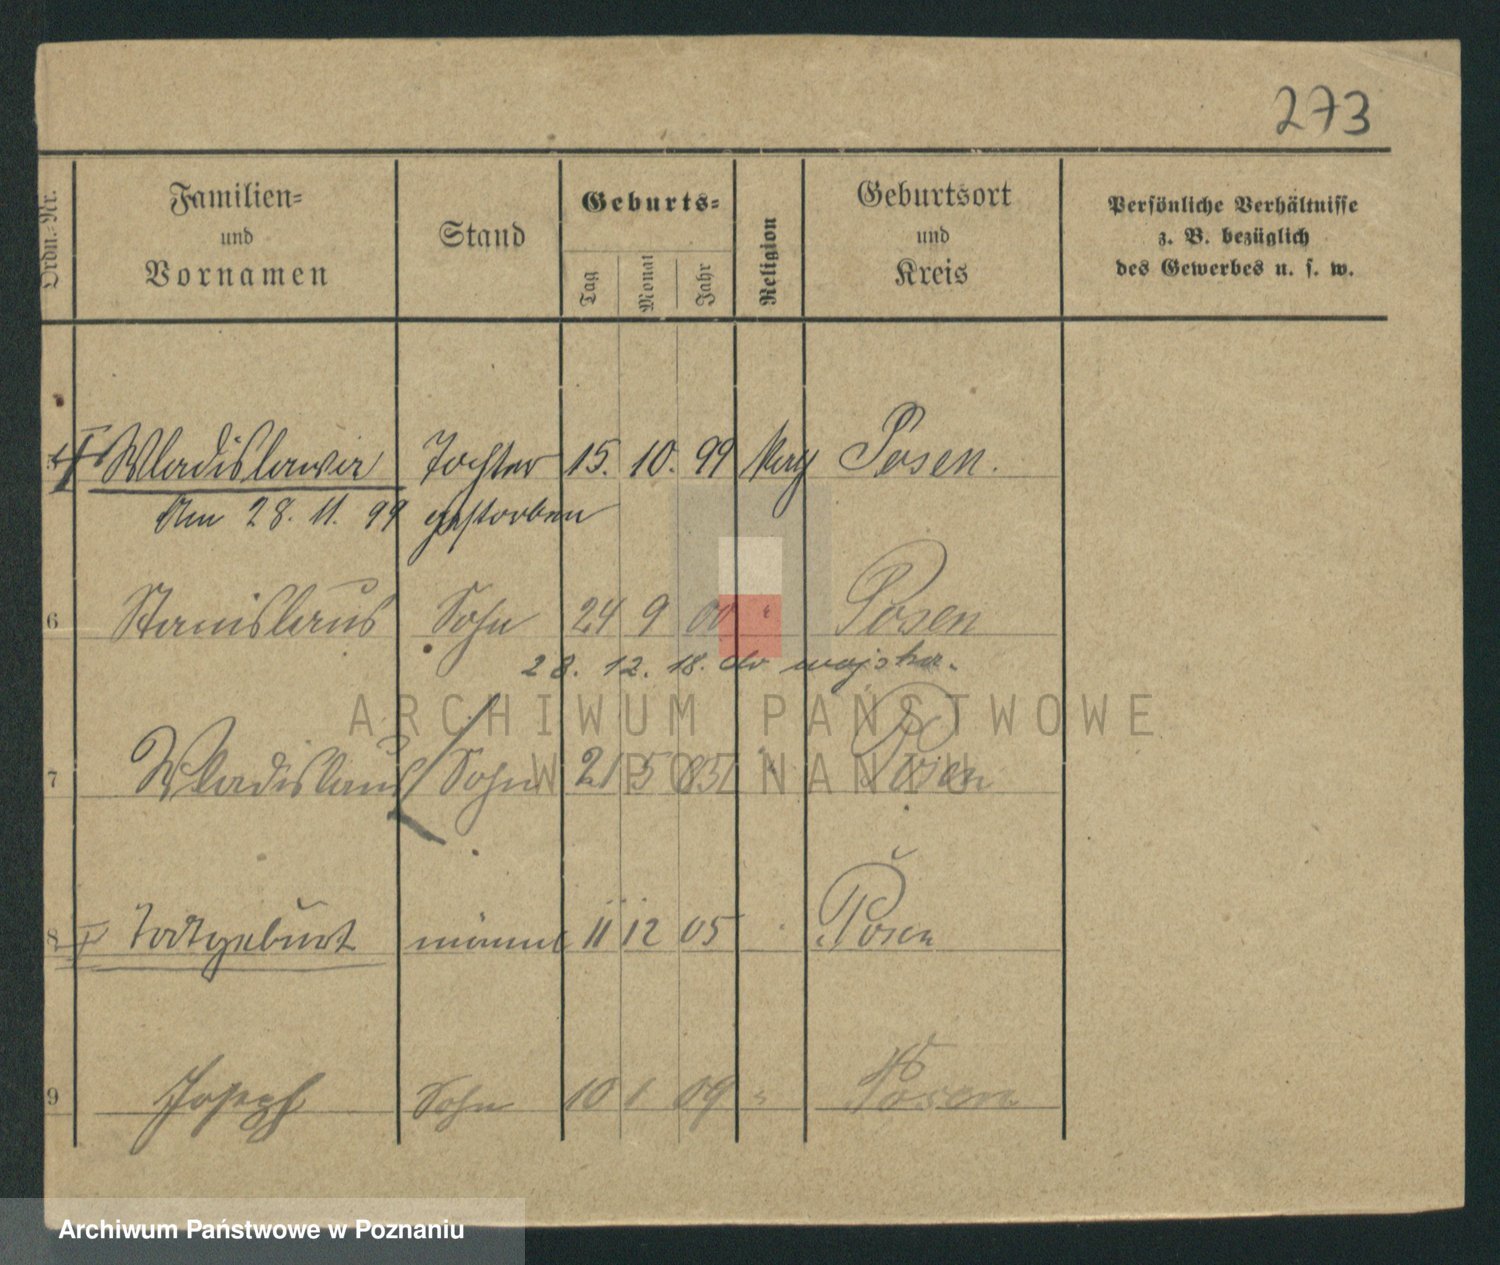 273
Ordn.-Nr.
Familien-
und
Vornamen
Stand
Geburts-
Tag
Monat
Jahr
Religion
Geburtsort
und
Kreis
Persönliche Verhältnisse
z. B. bezüglich
des Gewerbes u. s. w.
Wladislawa Tochter 15. 10. 99 Posen.
Am 28. 11. 99 gestorben
6 Stanislaus Sohn 24 9 00 " Posen
28. 12. 18. do wojska.
ARCHIWUM PAŃSTWOWE
W POZNANIU
7 Wladislaus Sohn 21 5 " Posen
8 Todtgeburt männl 11 12 05 Posen
9 Joseph Sohn 10 1 09 " Posen
Archiwum Państwowe w Poznaniu